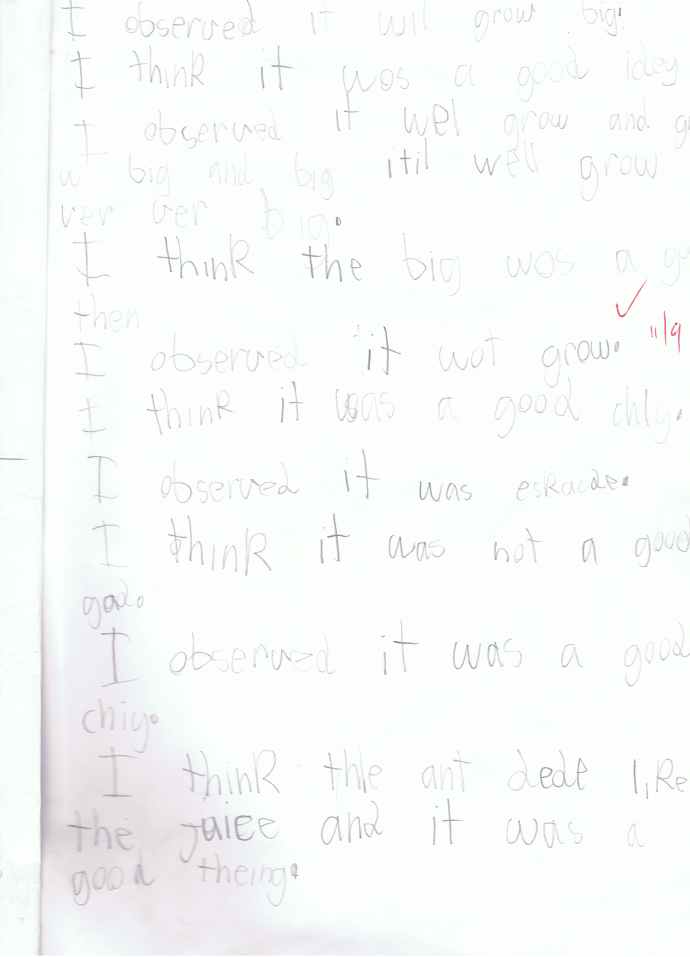 I observed it wil grow big.
I think it wos a good idey
I observed it wel grow and
w big and big itil well grow
ver ver big.
I think the big wos a
then
I observed it wot grow. 11/9
I think it was a good chly.
I observed it was eskacde.
I think it was not a good
gad.
I observed it was a good
chiy.
I think thle ant dedt like
the juiee and it was a
good theing.